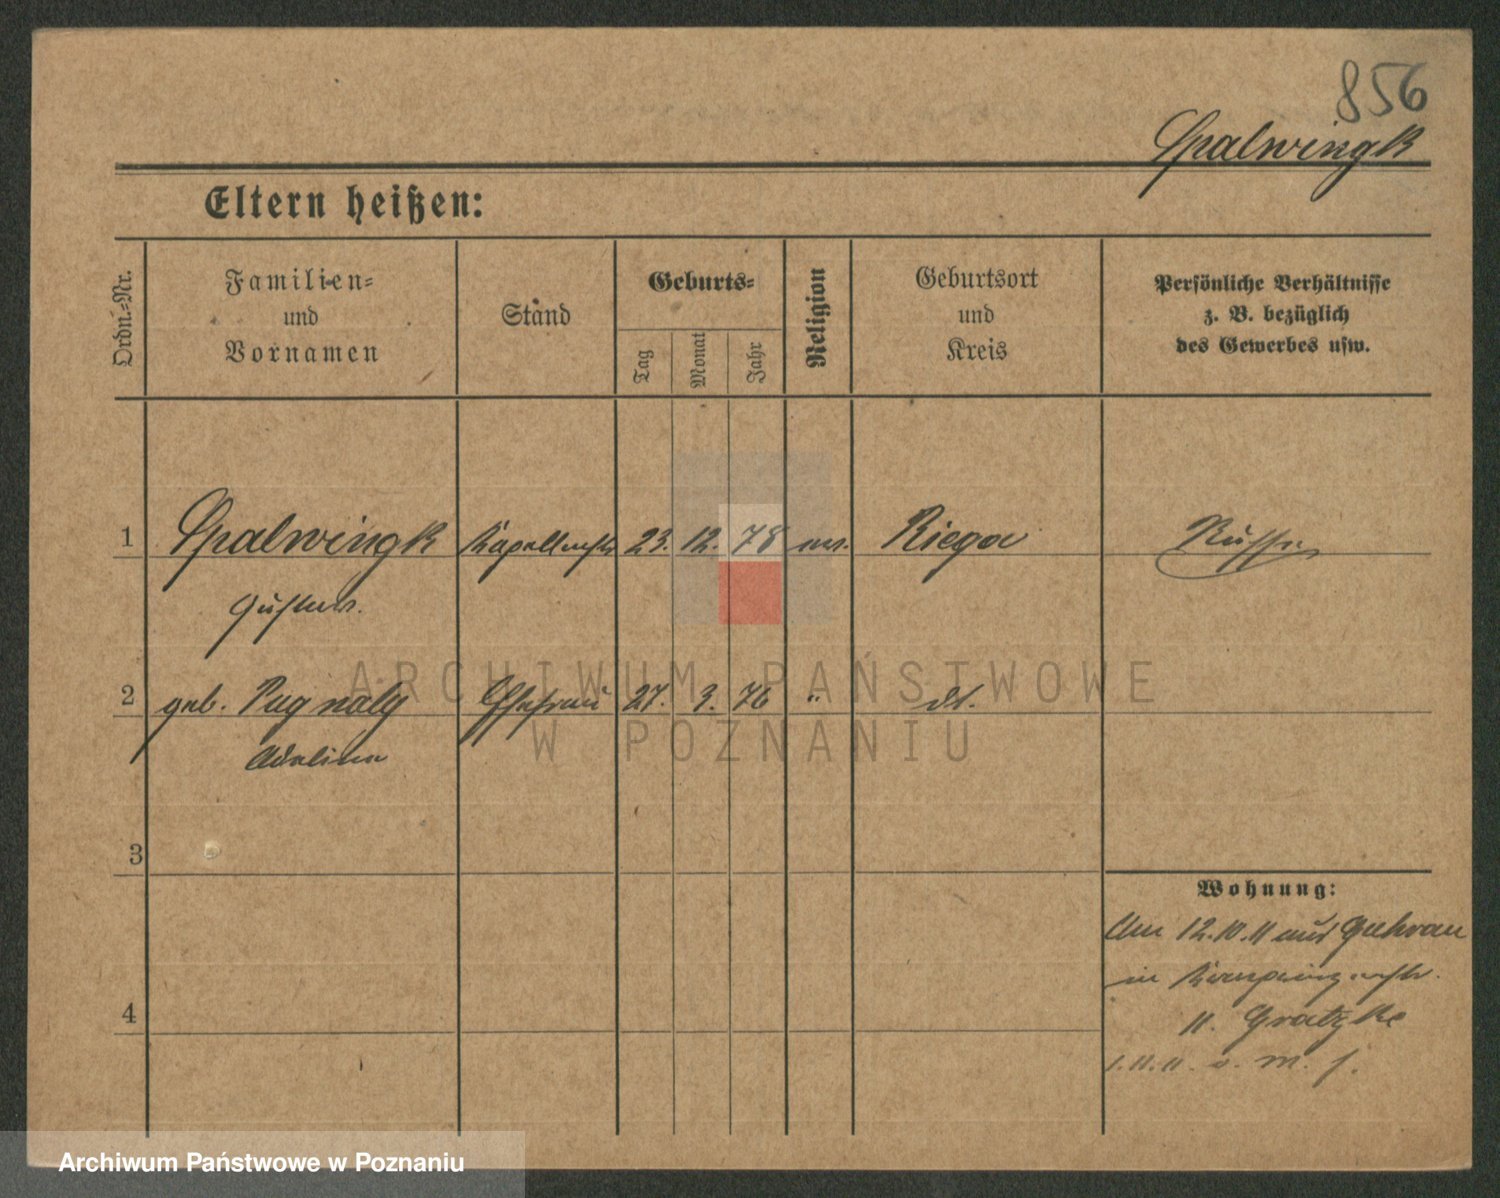 856
Spalwingk
Eltern heißen:
Ordn.-Nr.
Familien-
und
Vornamen
Stand
Geburts-
Tag
Monat
Jahr
Religion
Geburtsort
und
Kreis
Persönliche Verhältnisse
z. B. bezüglich
des Gewerbes usw.
1 Spalwingk Kapellmstr 23. 12. 78 ev. Riega Russe
Gustav.
2 geb. Pugnalg Ehefrau 27. 3. 76 " dt.
Adelina
3
4
Wohnung:
Am 12.10.11 aus Guhrau
in Kronprinzenstr.
11. Gratzke
1.11.11 o. M. f.
ARCHIWUM PAŃSTWOWE
W POZNANIU
Archiwum Państwowe w Poznaniu